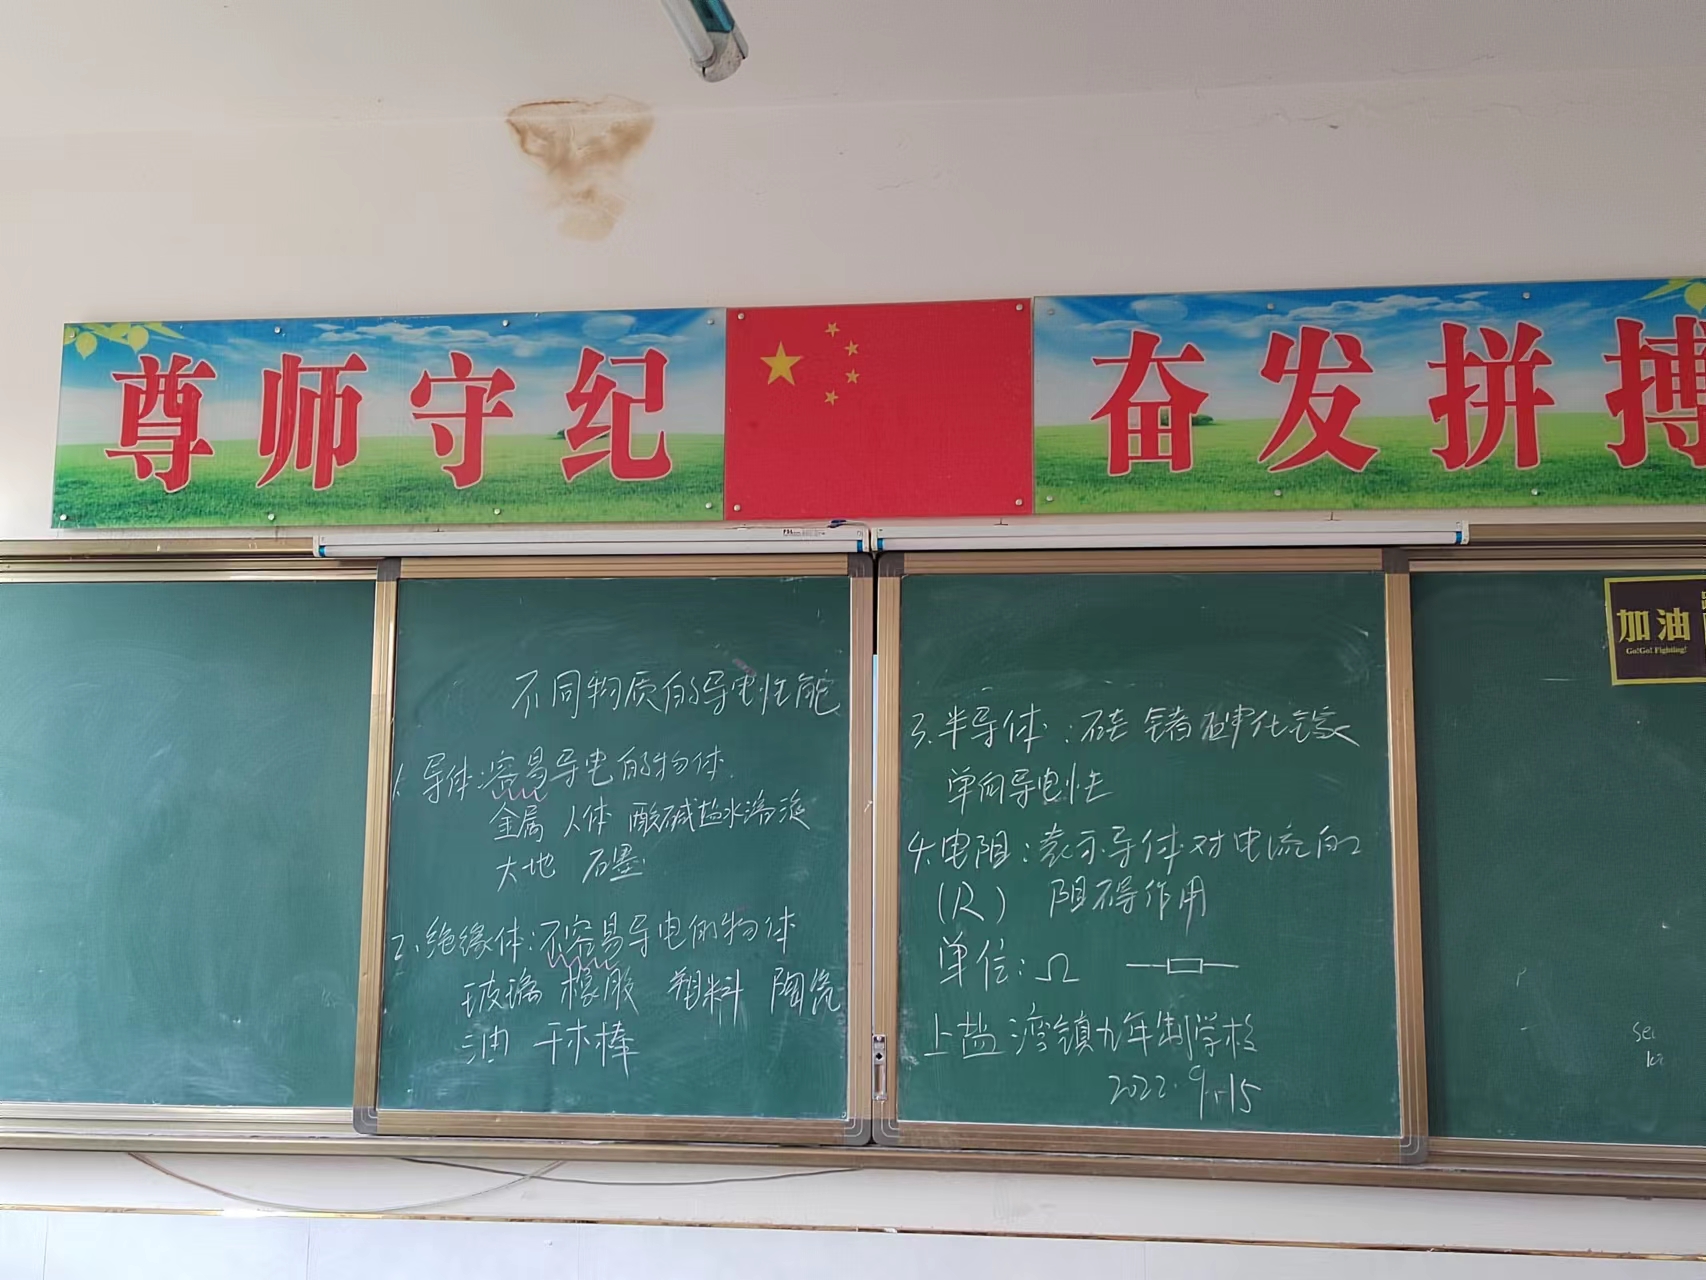 尊师守纪
奋发拼搏
加油
Go!Go! Fighting!
不同物质的导电性能
1、导体:容易导电的物体.
金属 人体 酸碱盐水溶液
大地 石墨.
2、绝缘体:不容易导电的物体
玻璃 橡胶 塑料 陶瓷
油 干木棒
3、半导体:硅 锗 砷化镓
单向导电性
4、电阻:表示导体对电流的
(R) 阻碍作用
单位:Ω
上盐湾镇九年制学校
2022.9.15